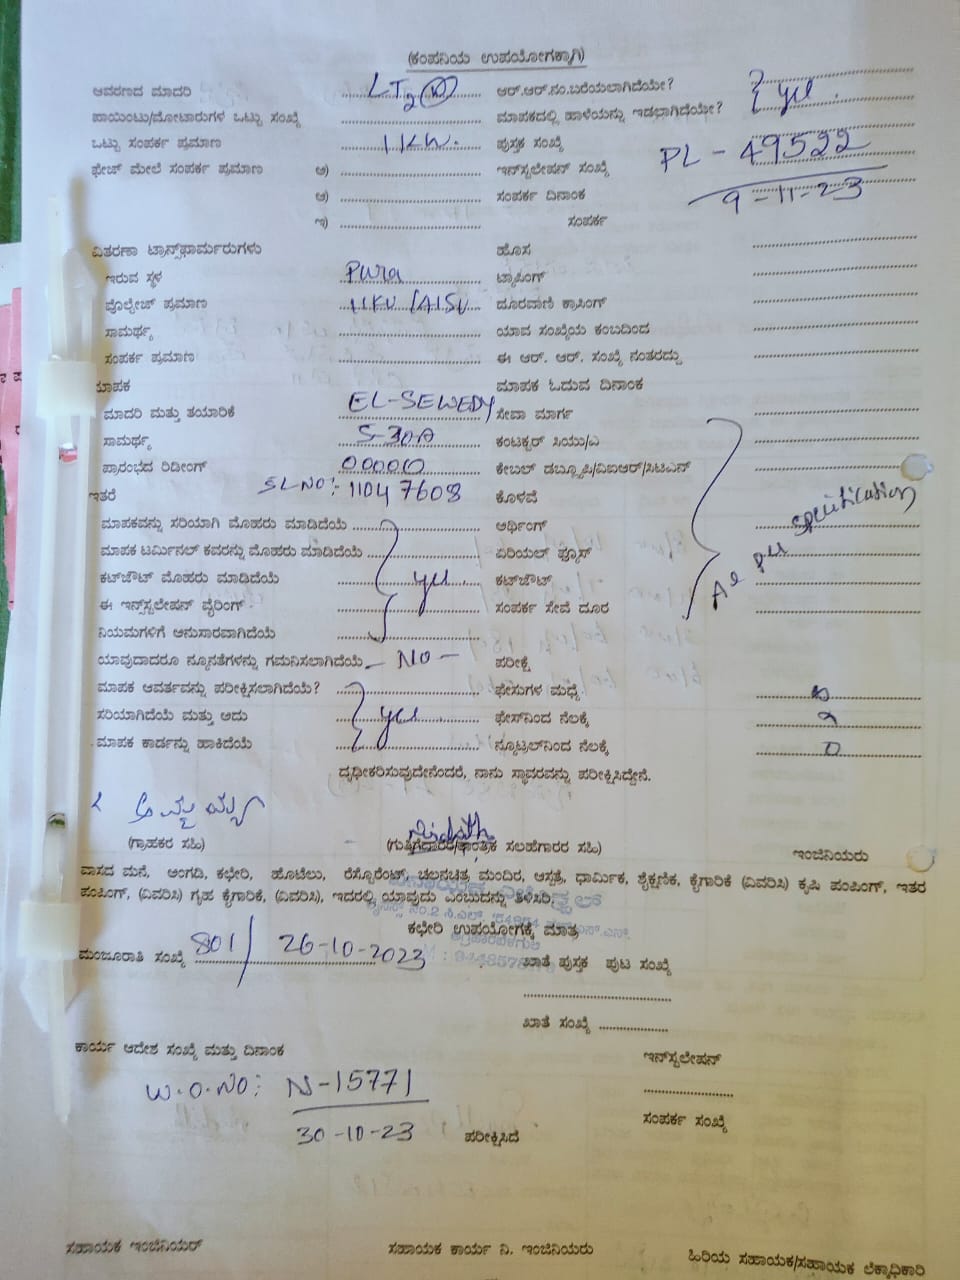 (ಕಂಪನಿಯ ಉಪಯೋಗಕ್ಕಾಗಿ)
ಆವರಣದ ಮಾದರಿ LT2(a) ಆರ್.ಆರ್.ನಂ.ಬರೆಯಲಾಗಿದೆಯೇ?
ಪಾಯಿಂಟು/ಮೋಟಾರುಗಳ ಒಟ್ಟು ಸಂಖ್ಯೆ ಮಾಪಕದಲ್ಲಿ ಹಾಳೆಯನ್ನು ಇಡಲಾಗಿದೆಯೇ? yes
ಒಟ್ಟು ಸಂಪರ್ಕ ಪ್ರಮಾಣ 1 KW. ಪುಸ್ತಕ ಸಂಖ್ಯೆ
ಫೇಜ್ ಮೇಲೆ ಸಂಪರ್ಕ ಪ್ರಮಾಣ ಅ) ಇನ್‌ಸ್ಟಲೇಷನ್ ಸಂಖ್ಯೆ PL - 49522
ಆ) ಸಂಪರ್ಕ ದಿನಾಂಕ 9-11-23
ಇ) ಸಂಪರ್ಕ
ವಿತರಣಾ ಟ್ರಾನ್ಸ್‌ಫಾರ್ಮರುಗಳು ಹೊಸ
ಇರುವ ಸ್ಥಳ Pura ಟ್ಯಾಪಿಂಗ್
ವೊಲ್ಟೇಜ್ ಪ್ರಮಾಣ 11KV/415V ದೂರವಾಣಿ ಕ್ರಾಸಿಂಗ್
ಸಾಮರ್ಥ್ಯ ಯಾವ ಸಂಖ್ಯೆಯ ಕಂಬದಿಂದ
ಸಂಪರ್ಕ ಪ್ರಮಾಣ ಈ ಆರ್. ಆರ್. ಸಂಖ್ಯೆ ನಂತರದ್ದು
ಮಾಪಕ ಮಾಪಕ ಓದುವ ದಿನಾಂಕ
ಮಾದರಿ ಮತ್ತು ತಯಾರಿಕೆ EL-SEWEDY ಸೇವಾ ಮಾರ್ಗ
ಸಾಮರ್ಥ್ಯ 5-30A ಕಂಟಕ್ಟರ್ ಸಿಯು/ಎ
ಪ್ರಾರಂಭದ ರಿಡೀಂಗ್ 00000 ಕೇಬಲ್ ಡಬ್ಲ್ಯೂಪಿ/ವಿಐಆರ್/ಸಿಟಿಎಸ್
ಇತರೆ SLNO: 11047608 ಕೊಳವೆ
ಮಾಪಕವನ್ನು ಸರಿಯಾಗಿ ಮೊಹರು ಮಾಡಿದೆಯೆ ಅರ್ಥಿಂಗ್ As per specification
ಮಾಪಕ ಟರ್ಮಿನಲ್ ಕವರನ್ನು ಮೊಹರು ಮಾಡಿದೆಯೆ ಏರಿಯಲ್ ಫ್ಯೂಸ್
ಕಟ್‌ಔಟ್ ಮೊಹರು ಮಾಡಿದೆಯೆ yes ಕಟ್‌ಔಟ್
ಈ ಇನ್ಸ್‌ಟಲೇಷನ್ ವೈರಿಂಗ್ ಸಂಪರ್ಕ ಸೇವೆ ದೂರ
ನಿಯಮಗಳಿಗೆ ಅನುಸಾರವಾಗಿದೆಯೆ
ಯಾವುದಾದರೂ ನ್ಯೂನತೆಗಳನ್ನು ಗಮನಿಸಲಾಗಿದೆಯೆ - NO - ಪರೀಕ್ಷೆ
ಮಾಪಕ ಆವರ್ತವನ್ನು ಪರೀಕ್ಷಿಸಲಾಗಿದೆಯೆ? ಫೇಸುಗಳ ಮಧ್ಯೆ
ಸರಿಯಾಗಿದೆಯೆ ಮತ್ತು ಅದು yes ಫೇಸ್‌ನಿಂದ ನೆಲಕ್ಕೆ
ಮಾಪಕ ಕಾರ್ಡನ್ನು ಹಾಕಿದೆಯೆ ನ್ಯೂಟ್ರಲ್‌ನಿಂದ ನೆಲಕ್ಕೆ
ದೃಢೀಕರಿಸುವುದೇನೆಂದರೆ, ನಾನು ಸ್ಥಾವರವನ್ನು ಪರೀಕ್ಷಿಸಿದ್ದೇನೆ.
(ಗ್ರಾಹಕರ ಸಹಿ) (ಗುತ್ತಿಗೆದಾರರ/ತಾಂತ್ರಿಕ ಸಲಹೆಗಾರರ ಸಹಿ) ಇಂಜಿನಿಯರು
ವಾಸದ ಮನೆ, ಅಂಗಡಿ, ಕಛೇರಿ, ಹೊಟೆಲು, ರೆಸ್ಟೊರೆಂಟ್, ಚಲನಚಿತ್ರ ಮಂದಿರ, ಆಸ್ಪತ್ರೆ, ಧಾರ್ಮಿಕ, ಶೈಕ್ಷಣಿಕ, ಕೈಗಾರಿಕೆ (ವಿವರಿಸಿ) ಕೃಷಿ ಪಂಪಿಂಗ್, ಇತರ
ಪಂಪಿಂಗ್, (ವಿವರಿಸಿ) ಗೃಹ ಕೈಗಾರಿಕೆ, (ವಿವರಿಸಿ), ಇದರಲ್ಲಿ ಯಾವುದು ಎಂಬುದನ್ನು ತಿಳಿಸಿರಿ.
ಕಛೇರಿ ಉಪಯೋಗಕ್ಕೆ ಮಾತ್ರ
ಮಂಜೂರಾತಿ ಸಂಖ್ಯೆ 801/ 26-10-2023 ಖಾತೆ ಪುಸ್ತಕ ಪುಟ ಸಂಖ್ಯೆ
ಖಾತೆ ಸಂಖ್ಯೆ
ಕಾರ್ಯ ಆದೇಶ ಸಂಖ್ಯೆ ಮತ್ತು ದಿನಾಂಕ ಇನ್‌ಸ್ಟಲೇಷನ್
W.O.NO: N-15771
ಸಂಪರ್ಕ ಸಂಖ್ಯೆ
30-10-23 ಪರೀಕ್ಷಿಸಿದೆ
ಸಹಾಯಕ ಇಂಜಿನಿಯರ್ ಸಹಾಯಕ ಕಾರ್ಯ ನಿ. ಇಂಜಿನಿಯರು ಹಿರಿಯ ಸಹಾಯಕ/ಸಹಾಯಕ ಲೆಕ್ಕಾಧಿಕಾರಿ